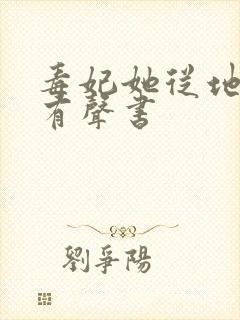 毒妃她從地
有聲書
劉爭陽